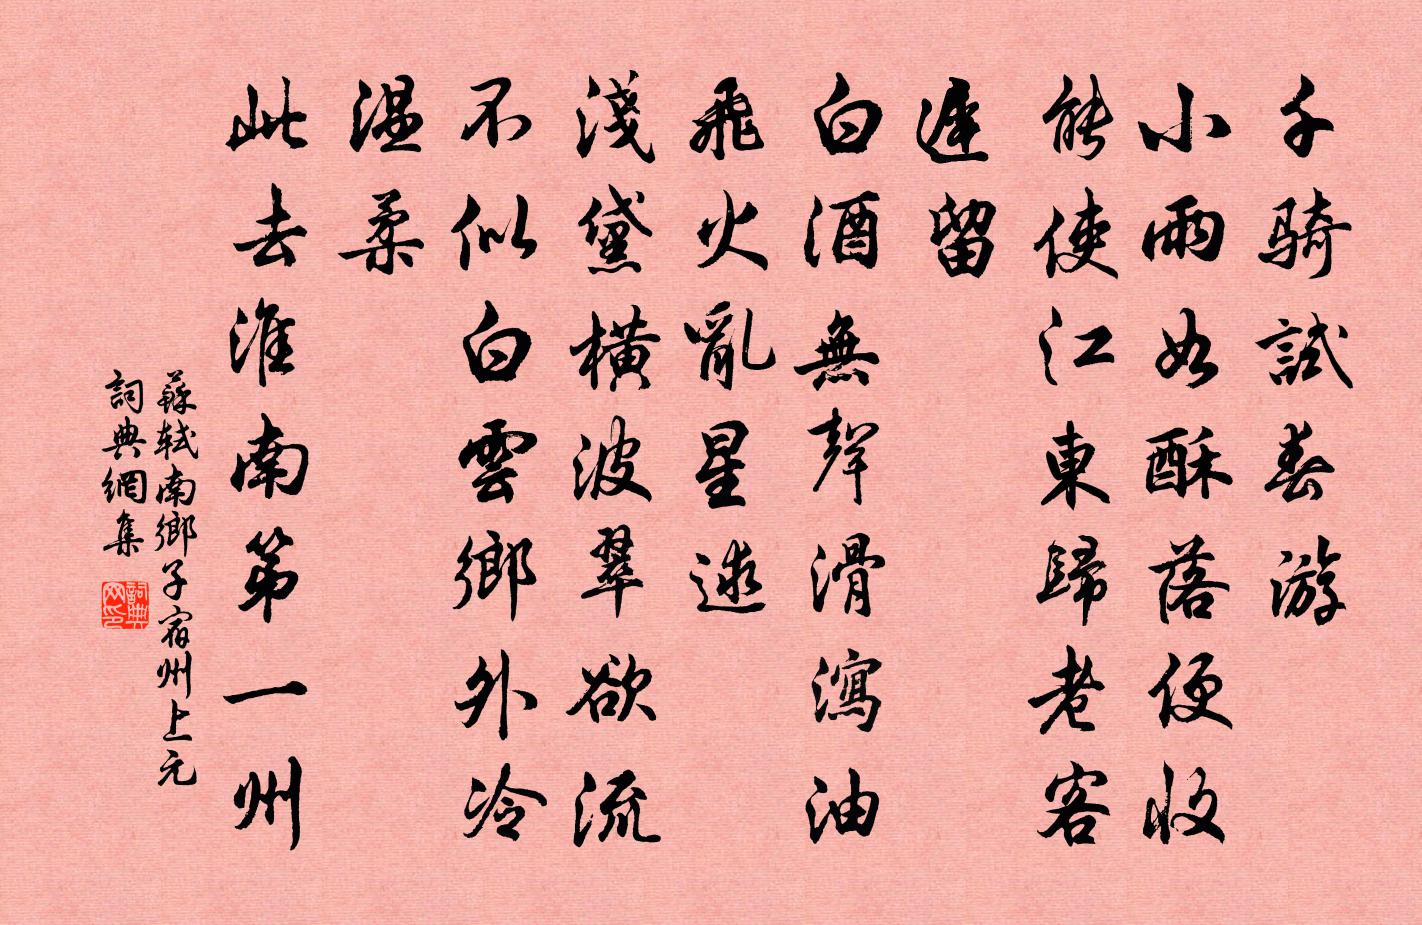 千騎試春游
小雨如酥落便收
能使江東歸老客
遲留
白酒無聲滑瀉油
飛火亂星逑
淺黛橫波翠欲流
不似白雲鄉外冷
溫柔
此去淮南第一州
蘇軾南鄉子宿州上元
詞典網集
詞典
网印